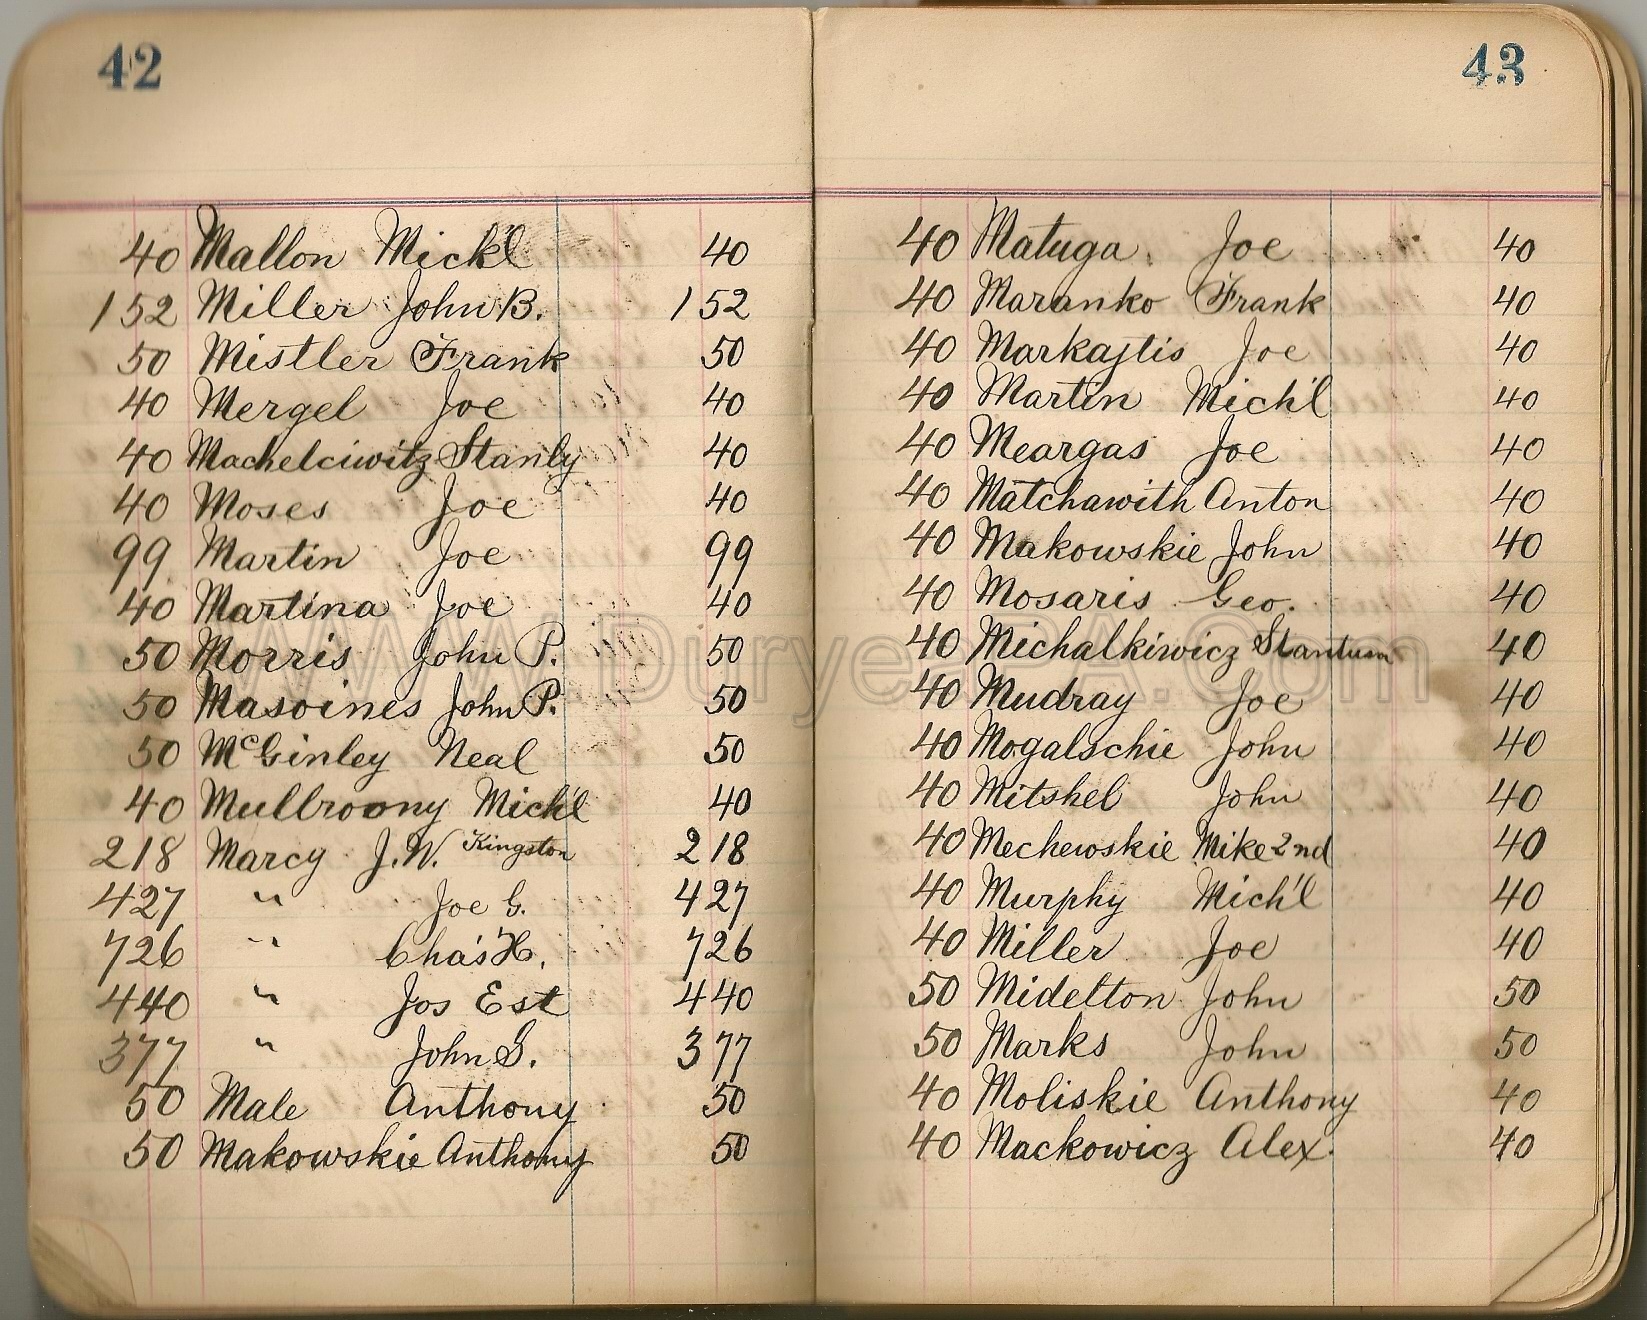 42
40 Mallon Mich'l 40
152 Miller John B. 152
50 Mistler Frank 50
40 Mergel Joe 40
40 Machelciwitz Stanly 40
40 Moses Joe 40
99 Martin Joe 99
40 Martina Joe 40
50 Morris John P. 50
50 Masoines John P. 50
50 McGinley Neal 50
40 Mullroony Mich'l 40
218 Marcy J.W. Kingston 218
427 " Joe G. 427
726 " Cha's H. 726
440 " Jos Est 440
377 " John S. 377
50 Male Anthony 50
50 Makowskie Anthony 50
43
40 Matuga Joe 40
40 Maranko Frank 40
40 Markajtis Joe 40
40 Martin Mich'l 40
40 Meargas Joe 40
40 Matchawith Anton 40
40 Makowskie John 40
40 Mosaris Geo. 40
40 Michalkiwicz Stantum 40
40 Mudray Joe 40
40 Mogalschie John 40
40 Mitshel John 40
40 Mechewskie Mike 2nd 40
40 Murphy Mich'l 40
40 Miller Joe 40
50 Midelton John 50
50 Marks John 50
40 Moliskie Anthony 40
40 Mackowicz Alex. 40
www.DuryeaPA.com